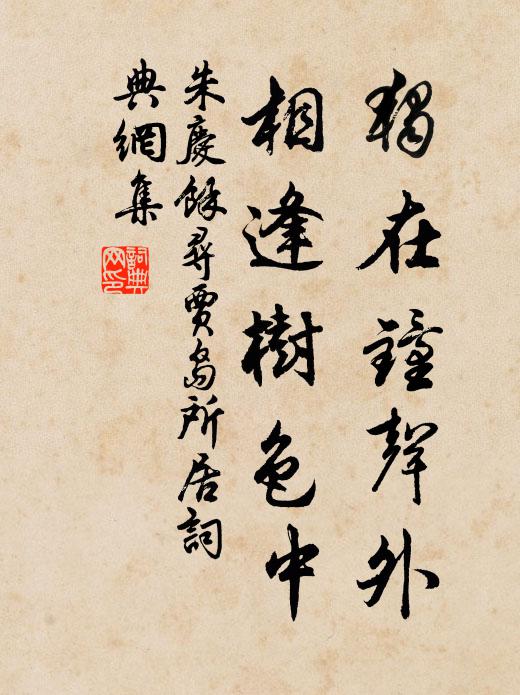 獨在鐘聲外
相逢樹色中
朱慶餘尋賈島所居詞
典網集
詞典
网印